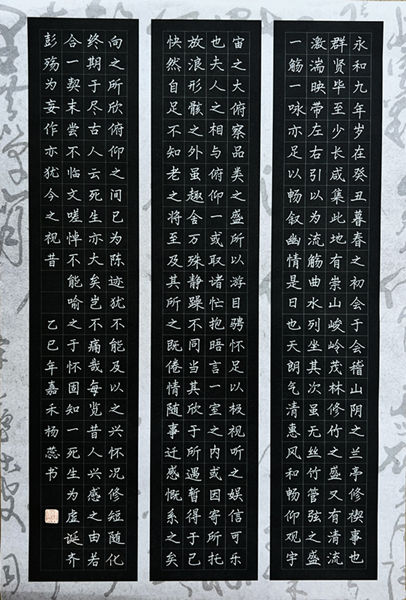 永和九年岁在癸丑暮春之初会于会稽山阴之兰亭修禊事也
群贤毕至少长咸集此地有崇山峻岭茂林修竹之盛又有清流
激湍映带左右引以为流觞曲水列坐其次虽无丝竹管弦之盛
一觞一咏亦足以畅叙幽情是日也天朗气清惠风和畅仰观宇
宙之大俯察品类之盛所以游目骋怀足以极视听之娱信可乐
也夫人之相与俯仰一或取诸忙抱晤言一室之内或因寄所托
放浪形骸之外虽趣舍万殊静躁不同当其欣于所遇暂得于己
快然自足不知老之将至及其所之既倦情随事迁感慨系之矣
向之所欣俯仰之间已为陈迹犹不能及以之兴怀况修短随化
终期于尽古人云死生亦大矣岂不痛哉每览昔人兴感之由若
合一契未尝不临文嗟悼不能喻之于怀固知一死生为虚诞齐
彭殇为妄作亦犹今之视昔 乙巳年嘉禾杨蕊书